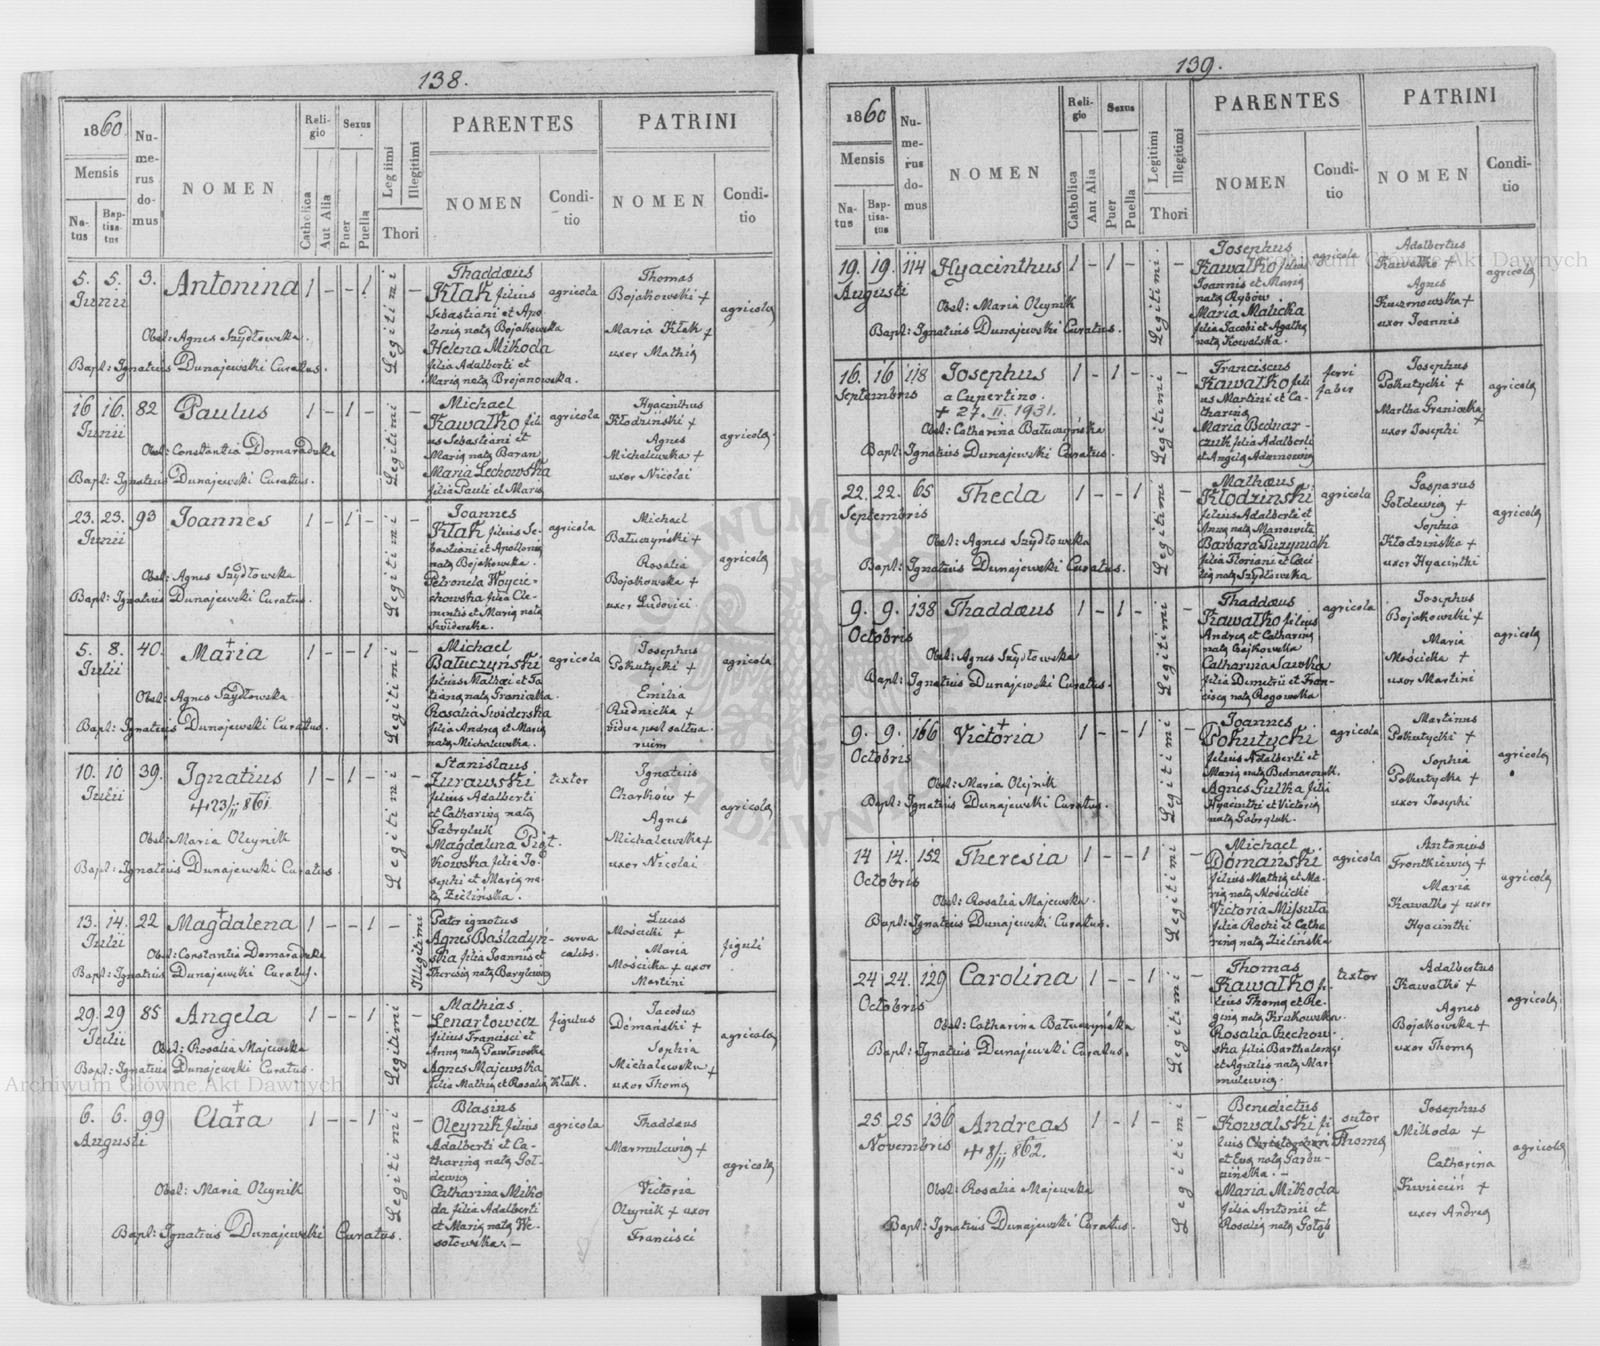 138.
1860.
Mensis
Natus
Baptisatus
Numerus domus
NOMEN
Religio
Catholica
Aut Alia
Sexus
Puer
Puella
Legitimi
Illegitimi
Thori
PARENTES
NOMEN
Conditio
PATRINI
NOMEN
Conditio
5. 5. 3. Antonina 1 – – 1 Legitimi –
Junii
Obst: Agnes Szydłowska.
Bapt: Ignatius Dunajewski Curatus.
Thaddæus
Kłak filius
Sebastiani et Apo-
lonia nata Bojakowska
Helena Mikoda
filia Adalberti et
Maria nata Brojanowska.
agricola
Thomas
Bojakowski +
Maria Kłak +
uxor Mathia
agricola
16 16. 82 Paulus 1 – 1 – Legitimi –
Junii
Obst: Constantia Domaradzka
Bapt: Ignatius Dunajewski Curatus.
Michael
Kawałko fili-
us Sebastiani et
Maria nata Baran
Maria Lechowska
filia Pauli et Maria
agricola
Hyacinthus
Kłodziński +
Agnes
Michalewska +
uxor Nicolai
agricola
23. 23. 93 Joannes 1 – 1 – Legitimi –
Junii
Obst: Agnes Szydłowska
Bapt: Ignatius Dunajewski Curatus.
Joannes
Kłak filius Se-
bastiani et Apollonia
nata Bojakowska.
Petronela Woycie-
chowska filia Cle-
mentis et Maria nata
Swiderska.
agricola
Michael
Batuczyński +
Rosalia
Bojakowska +
uxor Ludovici
agricola
5. 8. 40. Maria + 1 – – 1 Legitimi –
Julii
Obst: Agnes Szydłowska
Bapt: Ignatius Dunajewski Curatus.
Michael
Batuczyński
filius Mathæi et Ta-
tiana nata Graniczka
Rosalia Swiderska
filia Andrea et Maria
nata Michalewska.
agricola
Josephus
Pokutycki +
Emilia
Rudnicka +
vidua post saltua-
rium
agricola
10. 10 39. Ignatius 1 – 1 – Legitimi –
Julii
+ 23/II 861.
Obst: Maria Oleynik
Bapt: Ignatius Dunajewski Curatus.
Stanislaus
Żurawski
filius Adalberti
et Catharina nata
Gabryluk
Magdalena Piąt-
kowska filia Jo-
sephi et Maria na-
ta Zielińska.
textor
Ignatius
Charków +
Agnes
Michalewska +
uxor Nicolai
agricola
13. 14. 22 Magdalena + 1 – – 1 – Illegitimi
Julii
Obst: Constantia Domaradzka
Bapt: Ignatius Dunajewski Curatus.
Pater ignotus
Agnes Baśladyń-
ska filia Joannis et
Theresia nata Barylewicz
serva
calibs.
Lucas
Mościcki +
Maria
Mościcka + uxor
Martini
figuli
29. 29 85 Angela 1 – – 1 Legitimi –
Julii
Obst: Rosalia Majewska
Bapt: Ignatius Dunajewski Curatus.
Mathias
Lenartowicz
filius Francisci et
Anna nata Pawłowska
Agnes Majewska
filia Mathia et Rosalia Kłak.
figulus
Jacobus
Domański +
Sophia
Michalewska +
uxor Thoma
agricola
6. 6. 99 Clara + 1 – – 1 Legitimi –
Augusti
Obst: Maria Oleynik
Bapt: Ignatius Dunajewski Curatus.
Blasius
Oleynik filius
Adalberti et Ca-
tharina nata Goł-
dewicz
Catharina Miko-
da filia Adalberti
et Maria nata We-
sołowska. –
agricola
Thaddæus
Marmulewicz +
Victoria
Oleynik + uxor
Francisci
agricola
139.
1860
Mensis
Natus
Baptisatus
Numerus domus
NOMEN
Religio
Catholica
Aut Alia
Sexus
Puer
Puella
Legitimi
Illegitimi
Thori
PARENTES
NOMEN
Conditio
PATRINI
NOMEN
Conditio
19. 19. 114 Hyacinthus 1 – 1 – Legitimi –
Augusti
Obst: Maria Oleynik
Bapt: Ignatius Dunajewski Curatus.
Josephus
Kawałko filius
Joannis et Maria
nata Rybów
Maria Malicka
filia Jacobi et Agatha
nata Kowalska.
agricola
Adalbertus
Kawałko +
Agnes
+
uxor Joannis
agricola
16. 16 118 Josephus 1 – 1 – Legitimi –
Septembris
a Cupertino.
+ 27. II. 1931.
Obst: Catharina Batuczyńska
Bapt: Ignatius Dunajewski Curatus.
Franciscus
Kawałko fili-
us Martini et Ca-
tharina
Maria Bednar-
czuk filia Adalberti
et Angela Adamowicz
ferri
faber
Josephus
Pokutycki +
Martha Graniczka +
uxor Josephi
agricola
22. 22. 65 Thecla 1 – – 1 Legitimi –
Septembris
Obst: Agnes Szydłowska
Bapt: Ignatius Dunajewski Curatus.
Mathæus
Kłodziński
filius Adalberti et
Anna nata Manowita
Barbara Puzyniak
filia Floriani et Cæci-
lia nata Szydłowska
agricola
Gasparus
Gołdewicz +
Sophia
Kłodzińska +
uxor Hyacinthi
agricola
9. 9. 138 Thaddæus 1 – 1 – Legitimi –
Octobris
Obst: Agnes Szydłowska
Bapt: Ignatius Dunajewski Curatus.
Thaddæus
Kawałko filius
Andrea et Catharina
nata Bojkowska
Catharina Sawka
filia Demetrii et Fran-
cisca nata Rogowska
agricola
Josephus
Bojakowski +
Maria
Mościcka +
uxor Martini
agricola
9. 9. 166 Victoria + 1 – – 1 Legitimi –
Octobris
Obst: Maria Olejnik
Bapt: Ignatius Dunajewski Curatus.
Joannes
Pokutycki
filius Adalberti et
Maria nata Bednarczuk.
Agnes Gulka filia
Hyacinthi et Victoria
nata Gabryluk.
agricola
Martinus
Pokutycki +
Sophia
Pokutycka +
uxor Josephi
agricola
14 14. 152 Theresia 1 – – 1 Legitimi –
Octobris
Obst: Rosalia Majewska.
Bapt: Ignatius Dunajewski Curatus.
Michael
Domański
filius Mathia et Ma-
ria nata Mościcki
Victoria Missuta
filia Rochi et Catha-
rina nata Zielińska
agricola
Antonius
Frontkiewicz +
Maria
Kawałko + uxor
Hyacinthi
agricola
24 24. 129 Carolina 1 – – 1 Legitimi –
Octobris
Obst: Catharina Batuczyńska
Bapt: Ignatius Dunajewski Curatus.
Thomas
Kawałko fi-
lius Thoma et Re-
gina nata Krukowska.
Rosalia Rzechow-
ska filia Bartholomæ
et Agnetis nata Mar-
mulewicz.
textor
Adalbertus
Kawałko +
Agnes
Bojakowska +
uxor Thoma
agricola
25 25 136 Andreas 1 – 1 – Legitimi –
Novembris
+ 8/II 862.
Obst: Rosalia Majewska
Bapt: Ignatius Dunajewski Curatus.
Benedictus
Kowalski fi-
lius Thoma
et Eva nata Garbu-
cińska. –
Maria Mikoda
filia Antonii et
Rosalia nata Gołąb
sutor
Josephus
Mikoda +
Catharina
Kwiecień +
uxor Andrea
agricola
Archiwum Główne Akt Dawnych
Archiwum Główne Akt Dawnych